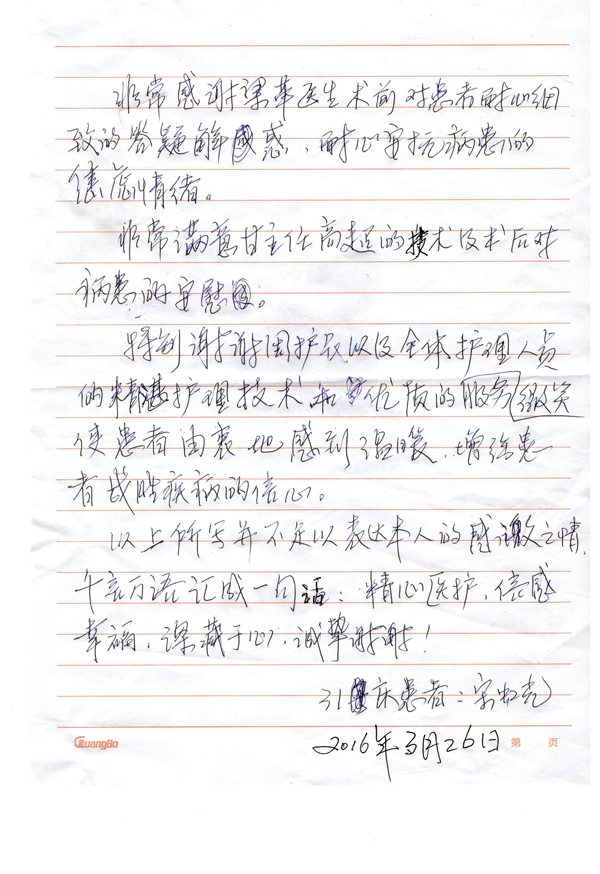 非常感谢梁華医生术前对患者耐心细
致的答疑解惑、耐心安抚病患的
焦虑情绪。
非常满意甘主任高超的技术及术后对
病患的安慰。
特别谢谢周护长以及全体护理人员
的精湛护理技术和优质的服务微笑
使患者由衷地感到温暖、增强患
者战胜疾病的信心。
以上所写并不足以表达本人的感激之情,
千言万语汇成一句话：精心医护，倍感
幸福，深藏于心，诚挚谢谢！
31床患者：宋
GuangBo
2016年3月26日
第 页